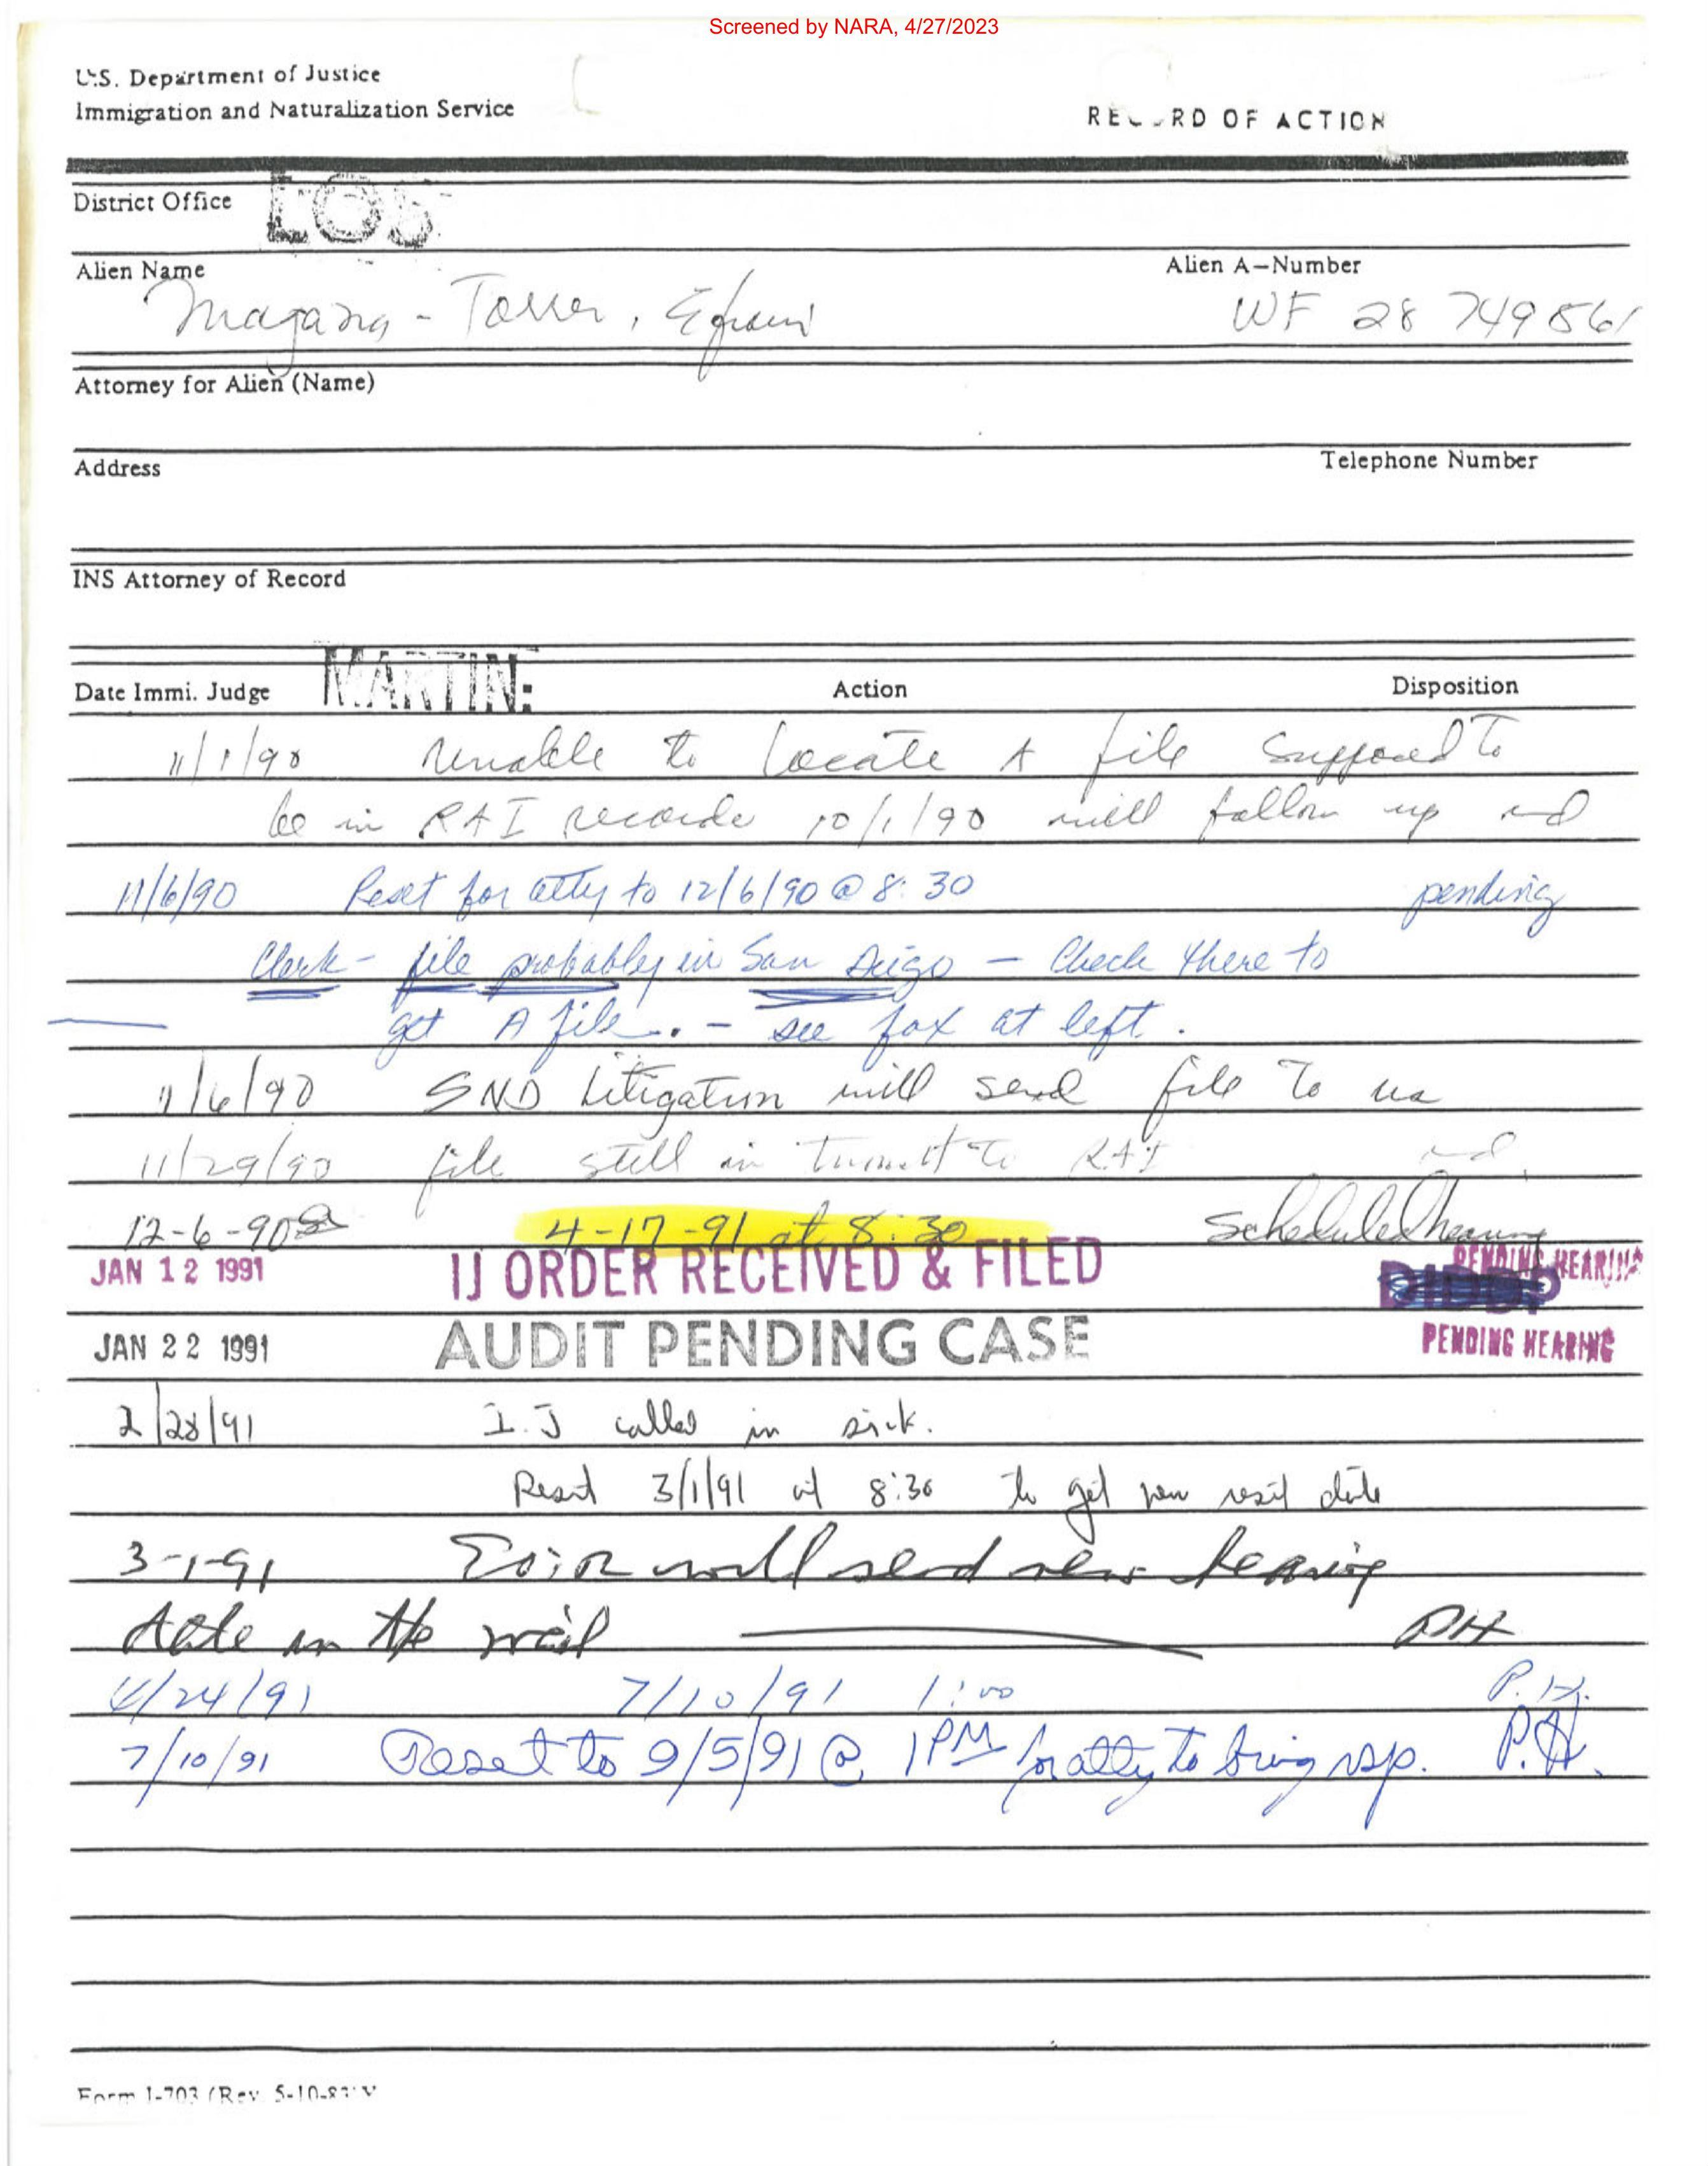 Screened by NARA, 4/27/2023
U.S. Department of Justice
Immigration and Naturalization Service
RECORD OF ACTION
District Office LOS
Alien Name
Alien A-Number
Magana - Torres, Efrain
WF 28 749 861
Attorney for Alien (Name)
Address
Telephone Number
INS Attorney of Record
Date Immi. Judge MARTIN
Action
Disposition
11/1/90 Unable to locate A file supposed to
be in R&I records 10/1/90 will follow up
11/6/90 Reset for atty to 12/6/90 @ 8:30 pending
Clerk - file probably in San Diego - Check there to
get A file. - see fax at left.
11/6/90 SND Litigation will send file to us
11/29/90 file still in to R&I
12-6-90 4-17-91 at 8:30 Scheduled hearing
JAN 12 1991 IJ ORDER RECEIVED & FILED PENDING HEARING
JAN 22 1991 AUDIT PENDING CASE PENDING HEARING
2/28/91 I.J called in sick.
Reset 3/1/91 at 8:30 to get new reset date
3-1-91 EOIR will send new hearing
date in the mail PH
4/24/91 7/10/91 1:00 P.H.
7/10/91 Reset to 9/5/91 @ 1PM for atty to bring rsp. P.H.
Form I-703 (Rev. 5-10-83) Y